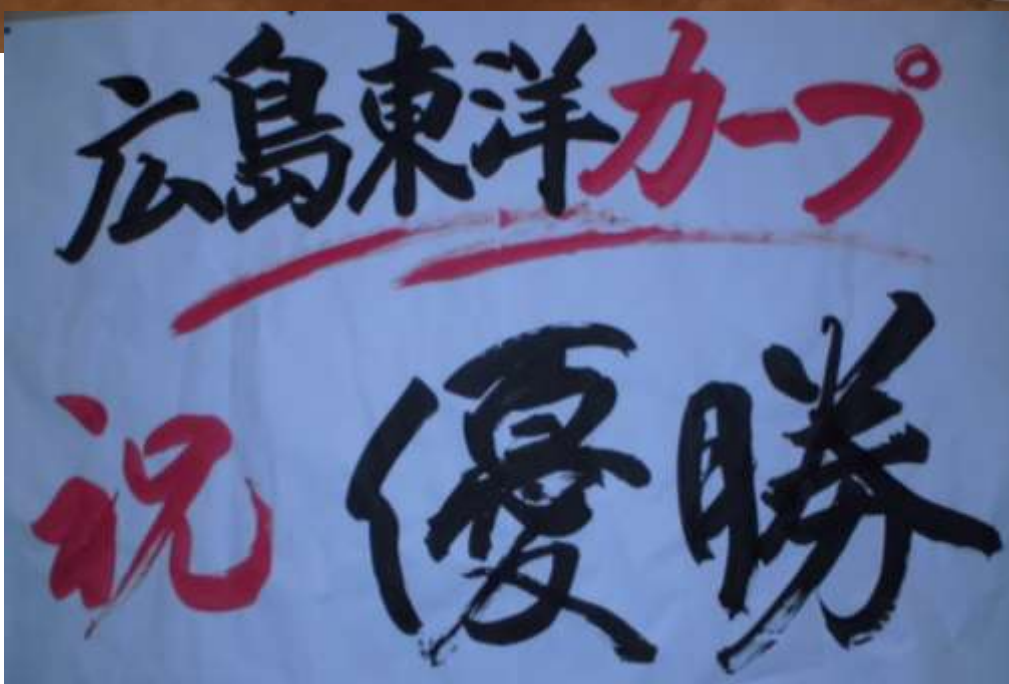 広島東洋カープ
祝 優勝